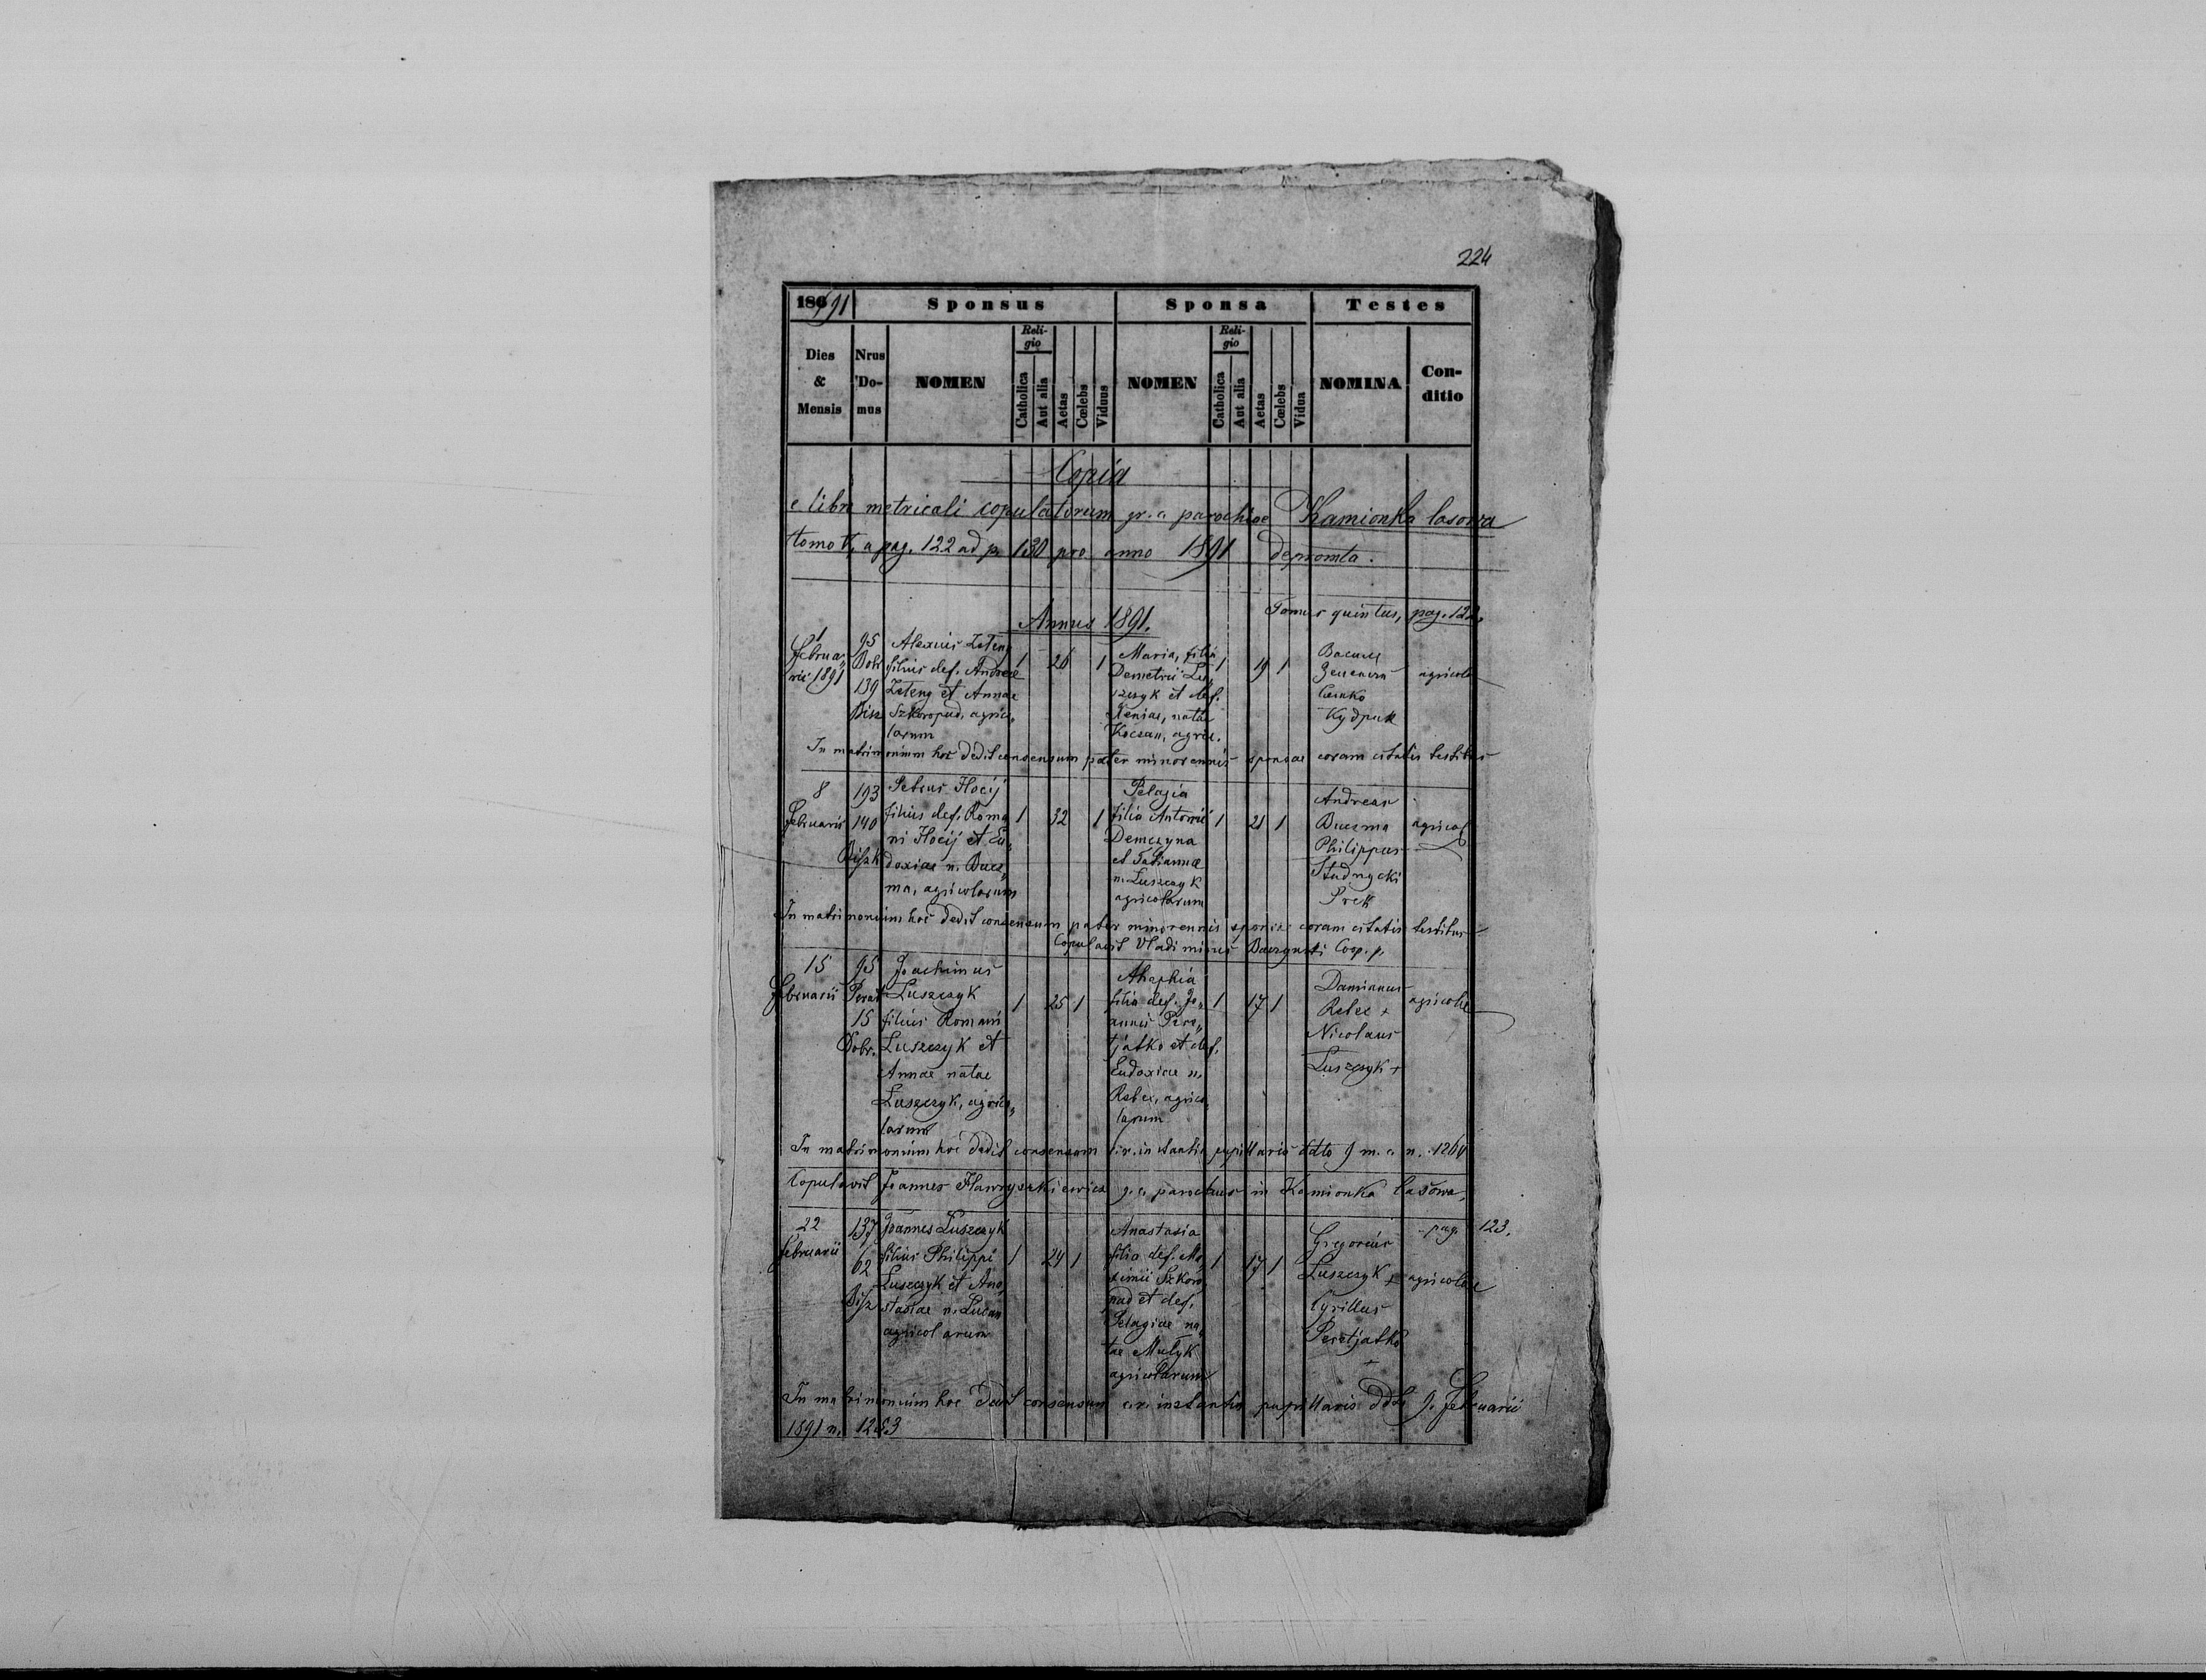 224
186/91 Sponsus Sponsa Testes
Dies & Mensis Nrus Domus NOMEN Religio Catholica Aut alia Aetas Cœlebs Viduus NOMEN Religio Catholica Aut alia Aetas Cœlebs Vidua NOMINA Conditio
Copia
e libro metricali copulatorum gr. c. parochiae Kamionka lasowa
tomo V, a pag. 122 ad p. 130 pro anno 1891 depromta.
Annus 1891.
Tomus quintus, pag. 122.
1 Februarii 1891
95 Dobr
139 Bisz
Alexius Zeteny
filius def. Andreae
Zeteny et Annae
Szkoropad, agrico„
larum
1 26 1
Maria, filia
Demetrii Lu„
szczyk et def.
Xeniae, natae
Koczan, agric.
1 19 1
Василь
Сенько
Кудрик
agricolae
In matrimonium hoc dedit consensum pater minorennis sponsae coram citatis testibus
8
Februarii
193
140
Biszk
Petrus Hocij
filius def. Roma
ni Hocij et Eu„
doxiae n. Bucz„
ma, agricolarum
1 32 1
Pelagia
filia Antonii
Demczyna
et Tatiannae
n. Luszczyk
agricolarum
1 21 1
Andreas
Buczma
Philippus
Studnycki
Prek
agricol
In matrimonium hoc dedit consensum pater minorennis sponsae coram citatis testibus
Copulavit Vladimirus Coop. p.
15
Februarii
95
15
Dobr.
Joachimus
Luszczyk
filius Romani
Luszczyk et
Annae natae
Luszczyk, agrico„
larum
1 25 1
filia def. Jo„
annis Pere„
tjatko et def.
Eudoxiae n.
Rebec, agrico„
larum
1 17 1
Damianus
Rebec +
Nicolaus
Luszczyk +
agricolae
In matrimonium hoc dedit consensum instantia pupillaris ddto 9 m. c. n. 1264
Copulavit Joannes Hawryszkiewicz g. c. parochus in Kamionka lasowa.
22
Februarii
137
62
Bisz
Joannes Luszczyk
filius Philippi
Luszczyk et Ana„
stasiae n. Lucan
agricolarum
1 24 1
Anastasia
filia def. Ma„
ximii Szkoro„
pad et def.
Pelagiae na„
tae Mulyk
agricolarum
1 17 1
Gregorius
Luszczyk +
Cyrillus
Peretjatko
+
pag. 123.
agricolae
In matrimonium hoc dedit consensum c. r. instantia pupillaris ddto 9. Februarii
1891 n. 1253